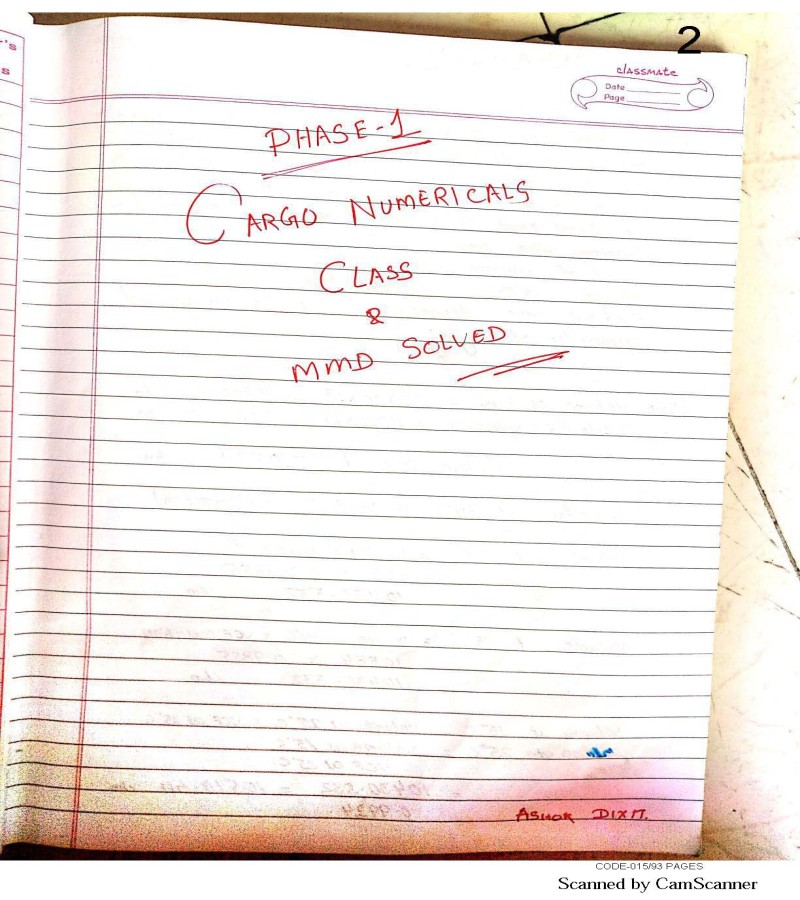 2
classmate
Date
Page
PHASE-1
CARGO NUMERICALS
CLASS
&
MMD SOLVED
ASHOK DIXIT.
CODE-015/93 PAGES
Scanned by CamScanner